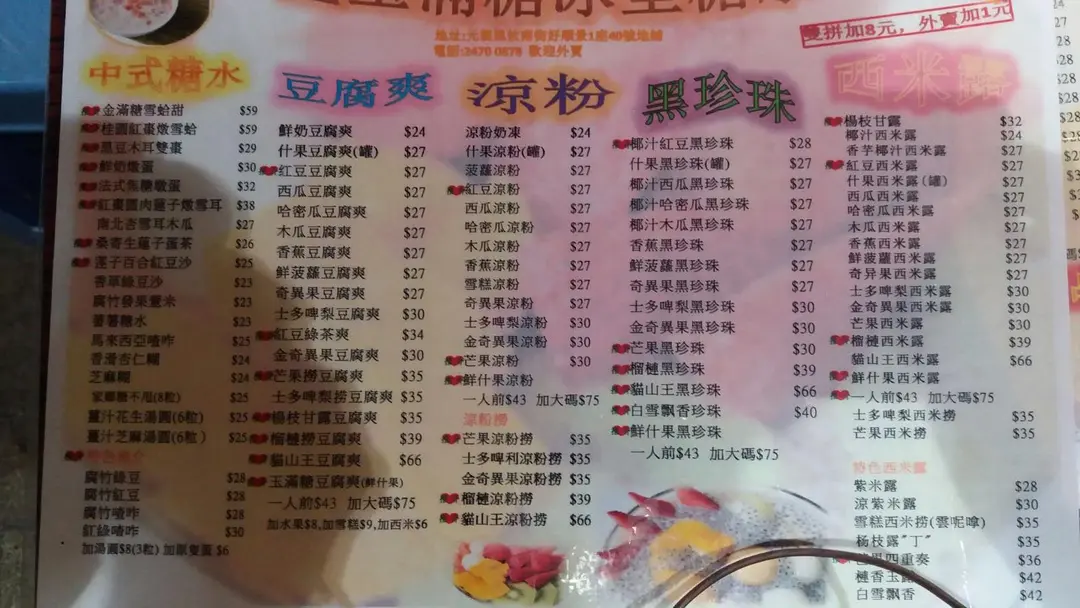 地址:元朗鳳攸南街好順景1座40號地鋪
電話:2470 0878 歡迎外賣
雙拼加8元，外賣加1元
中式糖水
金滿糖雪蛤甜 $59
桂圓紅棗燉雪蛤 $59
黑豆木耳雙棗 $29
鮮奶燉蛋 $30
法式焦糖燉蛋 $32
紅棗圓肉蓮子燉雪耳 $38
南北杏雪耳木瓜 $27
桑寄生蓮子蛋茶 $26
蓮子百合紅豆沙 $25
香草綠豆沙 $23
腐竹發果薏米 $23
蕃薯糖水 $23
馬來西亞喳咋 $25
香滑杏仁糊 $24
芝麻糊 $24
家鄉糖不甩(8粒) $25
薑汁花生湯圓(6粒) $25
薑汁芝麻湯圓(6粒) $25
腐竹綠豆 $28
腐竹紅豆 $28
腐竹喳咋 $28
紅綠喳咋 $30
加湯圓$8(3粒) 加原隻蛋 $6
豆腐爽
鮮奶豆腐爽 $24
什果豆腐爽(罐) $27
红豆豆腐爽 $27
西瓜豆腐爽 $27
哈密瓜豆腐爽 $27
木瓜豆腐爽 $27
香蕉豆腐爽 $27
鮮菠蘿豆腐爽 $27
奇異果豆腐爽 $27
士多啤梨豆腐爽 $30
紅豆綠茶爽 $34
金奇異果豆腐爽 $30
芒果撈豆腐爽 $35
士多啤梨撈豆腐爽 $35
楊枝甘露豆腐爽 $35
榴槤撈豆腐爽 $39
貓山王豆腐爽 $66
玉滿糖豆腐爽(鮮什果)
一人前$43 加大碼$75
加水果$8,加雪糕$9,加西米$6
涼粉
涼粉奶凍 $24
什果涼粉(罐) $27
菠蘿涼粉 $27
紅豆涼粉 $27
西瓜涼粉 $27
哈密瓜涼粉 $27
木瓜涼粉 $27
香蕉涼粉 $27
雪糕涼粉 $27
奇異果涼粉 $27
士多啤梨涼粉 $30
金奇異果涼粉 $30
芒果涼粉 $30
鮮什果涼粉
一人前$43 加大碼$75
涼粉撈
芒果涼粉撈 $35
士多啤利涼粉撈 $35
金奇異果涼粉撈 $35
榴槤涼粉撈 $39
貓山王涼粉撈 $66
黑珍珠
椰汁紅豆黑珍珠 $28
什果黑珍珠(罐) $27
椰汁西瓜黑珍珠 $27
椰汁哈密瓜黑珍珠 $27
椰汁木瓜黑珍珠 $27
香蕉黑珍珠 $27
鮮菠蘿黑珍珠 $27
奇異果黑珍珠 $27
士多啤梨黑珍珠 $30
金奇異果黑珍珠 $30
芒果黑珍珠 $30
榴槤黑珍珠 $39
貓山王黑珍珠 $66
白雪飄香珍珠 $40
鮮什果黑珍珠
一人前$43 加大碼$75
西米露
楊枝甘露 $32
椰汁西米露 $24
香芋椰汁西米露 $27
紅豆西米露 $27
什果西米露(罐) $27
西瓜西米露 $27
哈密瓜西米露 $27
木瓜西米露 $27
香蕉西米露 $27
鮮菠蘿西米露 $27
奇异果西米露 $27
士多啤梨西米露 $30
金奇異果西米露 $30
芒果西米露 $30
榴槤西米露 $39
貓山王西米露 $66
鮮什果西米露
一人前$43 加大碼$75
士多啤梨西米撈 $35
芒果西米撈 $35
特色西米露
紫米露 $28
涼紫米露 $30
雪糕西米撈(雲呢嗱) $35
杨枝露"丁" $35
四重奏 $36
槤香玉露 $42
白雪飄香 $42